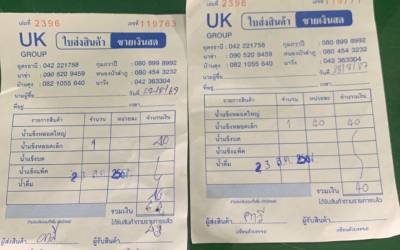 เล่มที่ 2396 เลขที่ 119763
UK
GROUP
ใบส่งสินค้า ขายเงินสด
อุดรธานี : 042 221758 กุมภวาปี : 080 899 8992
นาข่า : 090 520 9459 หนองบัวลำภู : 080 454 3232
บ้านดุง : 082 1055 640 นาวัง : 042 363304
วันที่
นามผู้ซื้อ
ที่อยู่
รายการสินค้า จำนวน หน่วยละ จำนวนเงิน
น้ำแข็งหลอดใหญ่
น้ำแข็งหลอดเล็ก 1 40
น้ำแข็งบด
น้ำแข็งแพ็ค
น้ำดื่ม
2 3 ส.ค. 256
รวมเงิน
ได้รับสินค้าตามรายการแล้ว
ผู้ส่งสินค้า ผู้รับสินค้า
เล่มที่ 2396 เลขที่
UK
GROUP
ใบส่งสินค้า ขายเงินสด
อุดรธานี : 042 221758 กุมภวาปี : 080 899 8992
นาข่า : 090 520 9459 หนองบัวลำภู : 080 454 3232
บ้านดุง : 082 1055 640 นาวัง : 042 363304
วันที่
นามผู้ซื้อ
ที่อยู่
รายการสินค้า จำนวน หน่วยละ จำนวนเงิน
น้ำแข็งหลอดใหญ่
น้ำแข็งหลอดเล็ก 1 40 40
น้ำแข็งบด
น้ำแข็งแพ็ค
น้ำดื่ม
2 3 ส.ค. 256
รวมเงิน 40
ได้รับสินค้าตามรายการแล้ว
ผู้ส่งสินค้า ผู้รับสินค้า